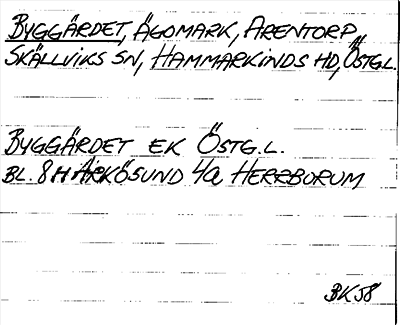 BYGGÄRDET, ÄGOMARK, ARENTORP,
SKÄLLVIKS SN, HAMMARKINDS HD, ÖSTGL.
BYGGÄRDET EK ÖSTG.L.
BL. 8H ARKÖSUND 4a HERRBORUM
BK58